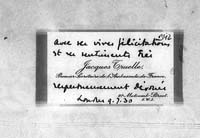 avec ses vives félicitations
et ses sentiments très
Jacques Truelle
Premier Secrétaire de l'Ambassade de France
respectueusement dévoués
Londres 9.7.30
S.W.1.